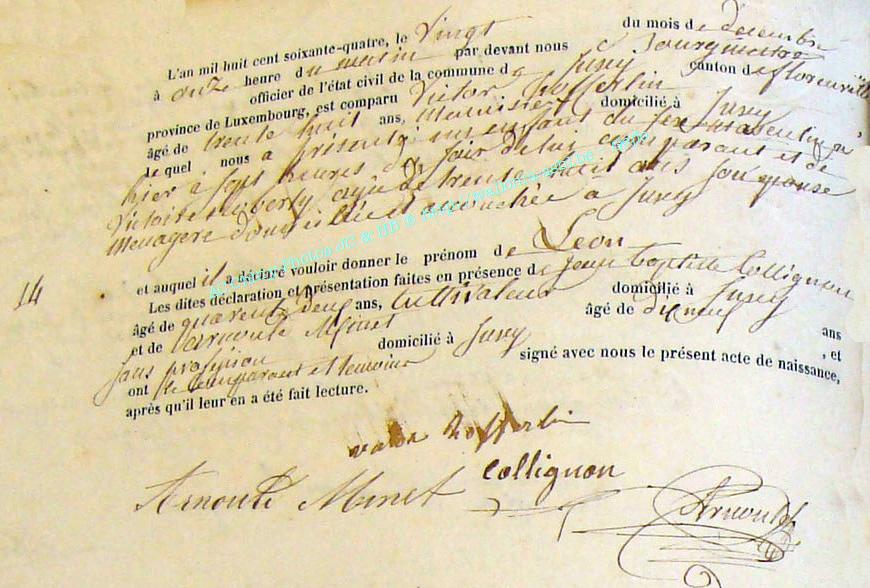 L'an mil huit cent soixante-quatre, le Vingt du mois de Decembre
à onze heure du matin par devant nous Bourgmestre
officier de l'état civil de la commune de Jusey canton de florenville
province de Luxembourg, est comparu Victor hofferlin
âgé de trente huit ans, Menuisier domicilié à Jusey
lequel nous a présenté un enfant du sexe Masculin né
hier à sept heures du soir de lui comparant et de
Victoire agée de trente huit ans son epouse
Menagere domiciliée et accouchée a Jusey
14
et auquel il a déclaré vouloir donner le prénom de Leon
Les dites déclaration et présentation faites en présence de jean baptiste Collignon
âgé de quarente deux ans, Cultivateur domicilié à Jusey
et de arnould Minet âgé de dixneuf ans
sans profession domicilié à Jusey , et
ont le Comparant et temoins signé avec nous le présent acte de naissance,
après qu'il leur en a été fait lecture.
hofferlin
Collignon
Arnould Minet
Arnould